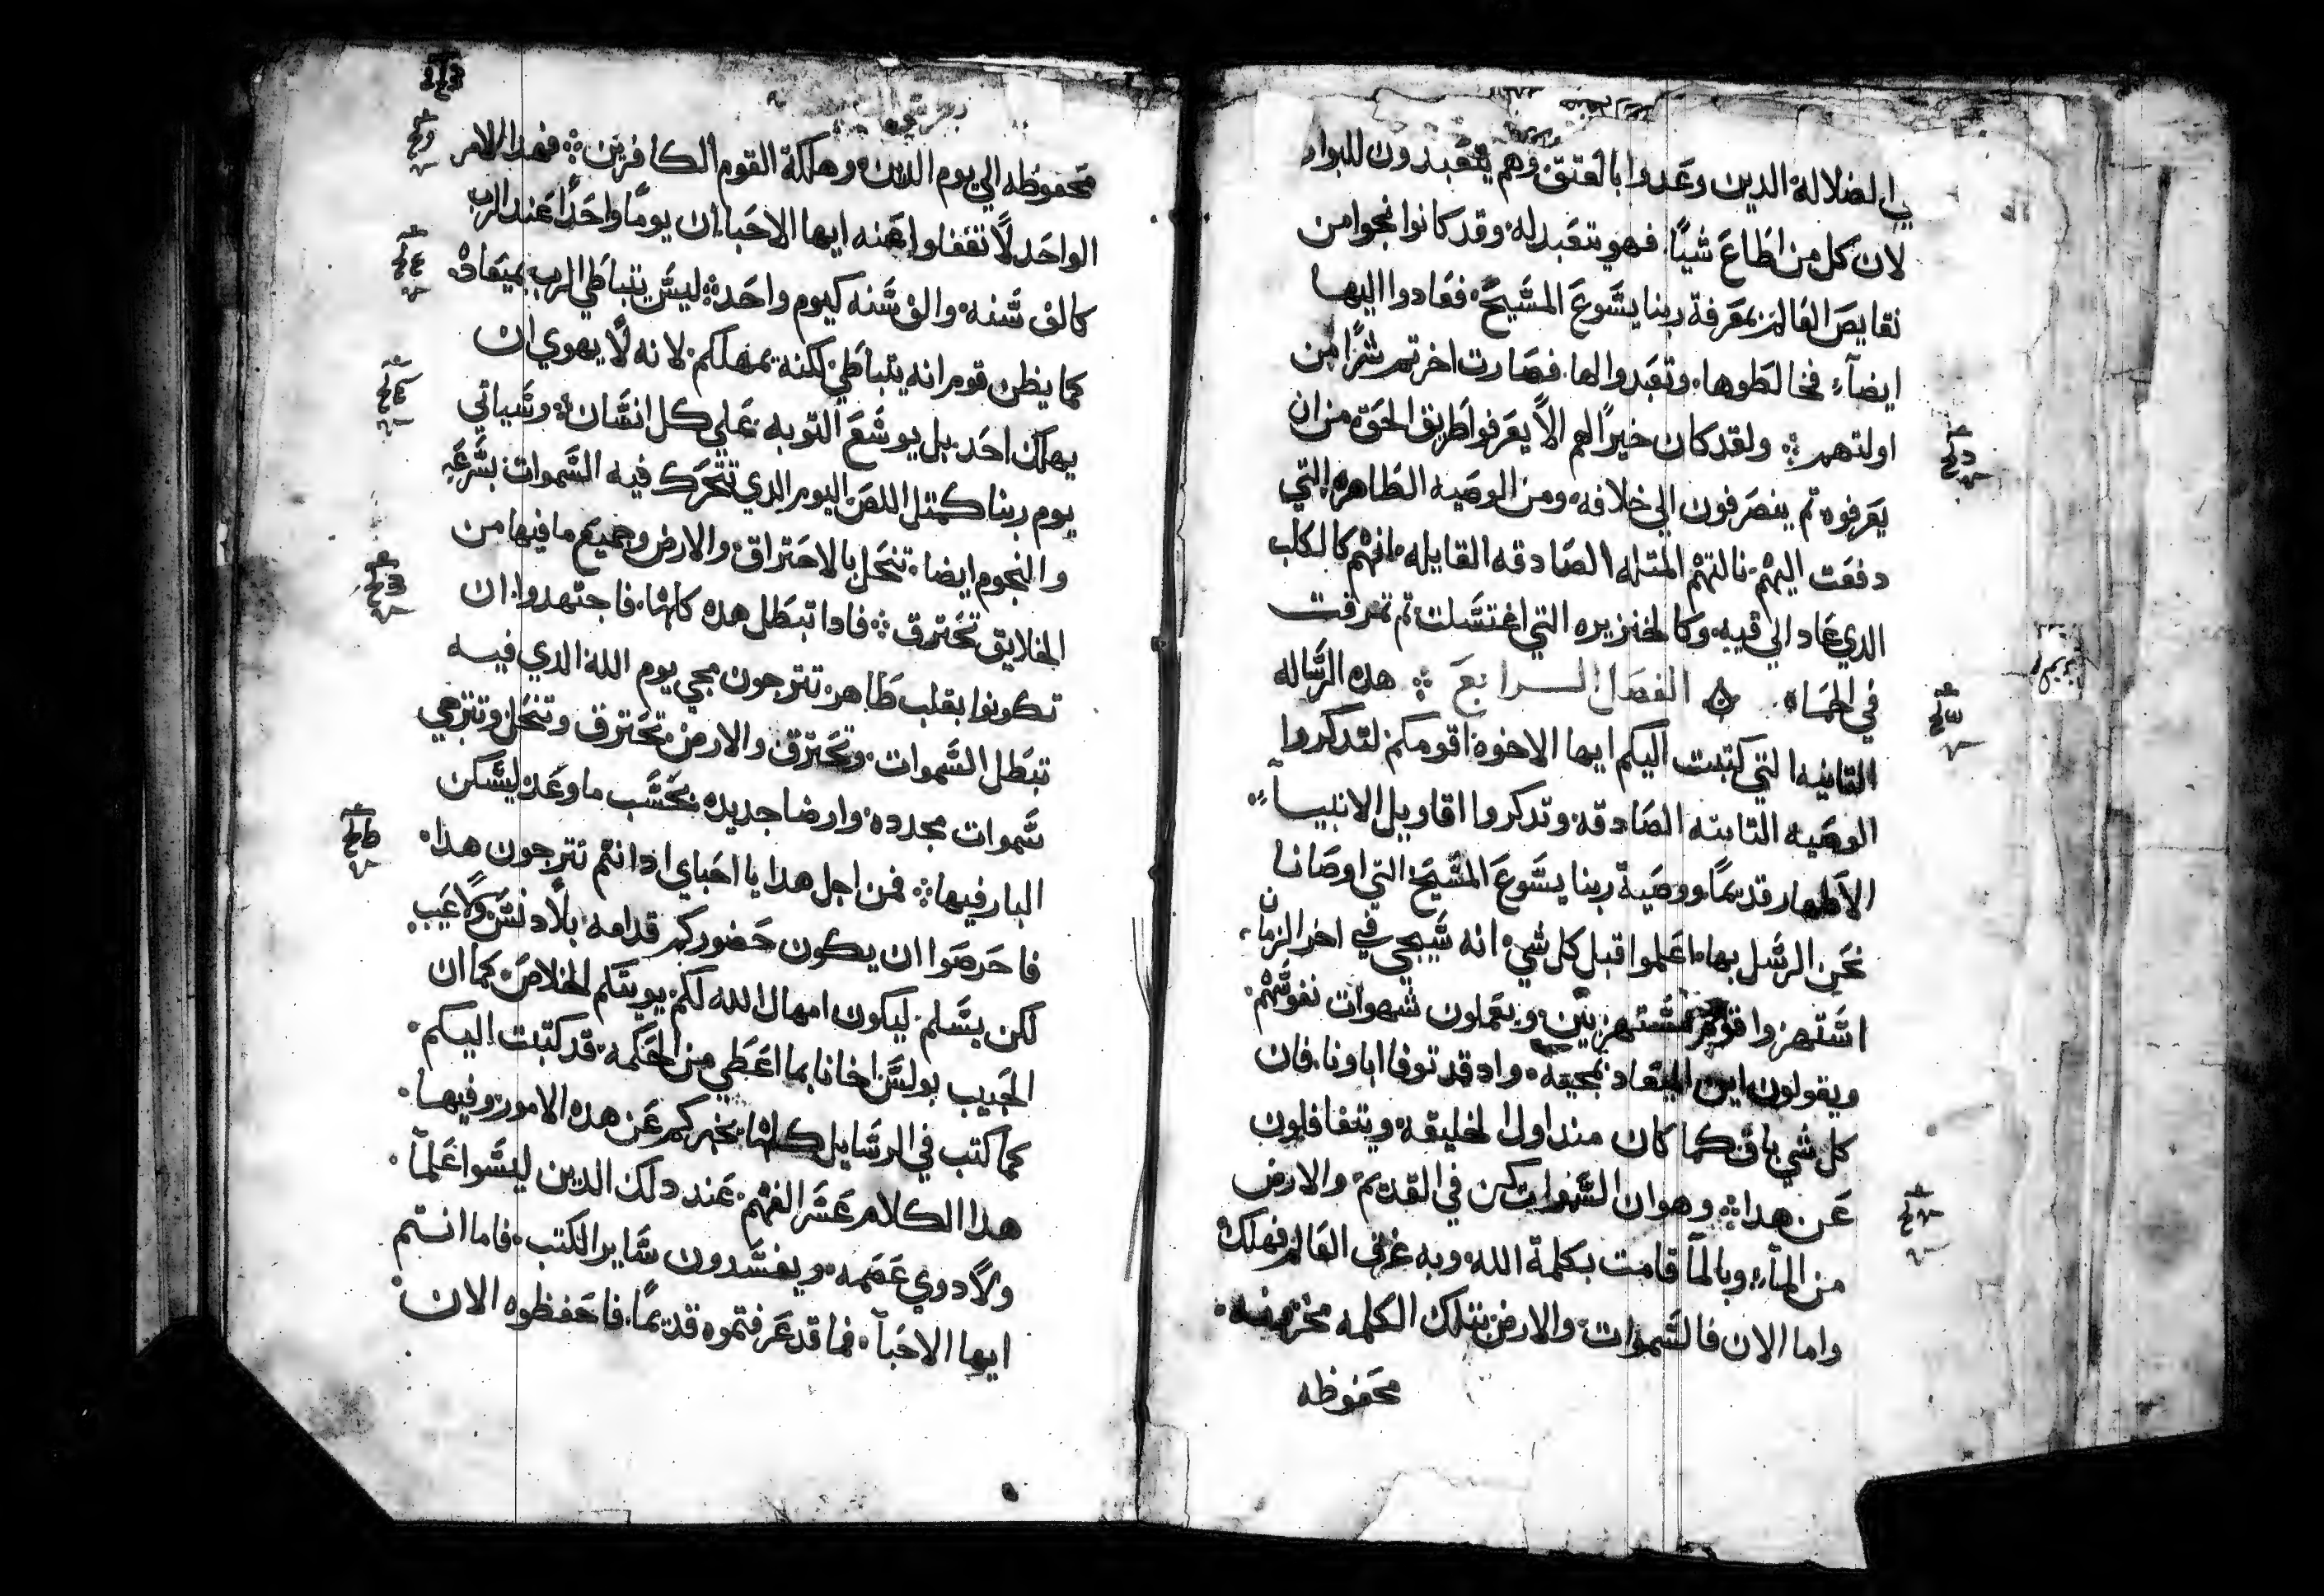 في الضلالة الدين وعدوا بالعتق وهم يتعبدون للبوار
لان كل من اطاع شيًا. فهو يتعبد له. وقد كانوا نجوا من
نقايص العالم بمعرفة ربنا يسوع المسيح. فعادوا اليها
ايضآء فخالطوها. وتعبدوا لها. فصارت اخرتهم شرًا من
اولتهم ⁘ ولقد كان خيرًا لهم الاّ يعرفوا طريق الحق من ان
يعرفوه تم ينصرفون الي خلافه. ومن الوصيه الطاهره التي
دفعت اليهم. نالتهم المتله الصادقه القايله. انهم كالكلب
الدي عاد الي قييه. وكالخنزيره التي اغتسلت تم تمرقت
في الحماه. الفصل الرابع ⁘ هده الرساله
التانيه التي كتبت اليكم ايها الاخوه اقومكم لتدكروا
الوصيه التابته الصادقه. وتدكروا اقاويل الانبيآ
الاطهار قديمًا. ووصية ربنا يسوع المسيح التي اوصانا
نحن الرسل بها. اعلموا قبل كل شي. انه سيجي في اخر الزمان
استهزوا قوم مستهزيين. ويعملون شهوات نفوسهم.
ويقولون اين الميعاد بمجيه. واد قد توفا اباونا. فان
كل شي باق كما كان مند اول الخليقه. ويتغافلون
عن هدا ⁘ وهو ان السموات كن في القديم. والارض
من المآء وبالمآ قامت بكلمة الله. وبه غرق العالم فهلك
واما الان فالسموات. والارض بتلك الكلمه مخزونه.
محفوظه
محفوظه الي يوم الدين. وهلكة القوم الكافرين ⁘ فهدا الامر
الواحد لا تغفلوا عنه ايها الاحبا. ان يومًا واحدًا عند الرب
كالف سنه. والف سنه كيوم واحد ⁘ ليس يتباطي الرب بميعاده.
كما يظن قوم انه يتباطي. لكنه يمهلكم. لانه لا يهوي ان
يهلك احد. بل يوسع التوبه علي كل انسان ⁘ وسياتي
يوم ربنا كمتل اللص. اليوم الدي تتحرك فيه السموات بسرعه
والنجوم ايضا. تنحل بالاحتراق. والارض وجميع ما فيها من
الخلايق تحترق ⁘ فادا تبطل هده كلها. فاجتهدوا. ان
تكونوا بقلب طاهر. تترجون مجي يوم الله الدي فيه
تبطل السموات. وتحترق. والارض تحترق وتنحل وترتجي
سموات مجدده. وارضا جديده بحسب ما وعد ليسكن
البار فيها ⁘ فمن اجل هدا يا احباي اد انتم تترجون هدا.
فاحرصوا ان يكون حضوركم قدامه بلا دنس ولا عيب.
لكن بسلم. ليكون امهال الله لكم. يويتكم الخلاص. كما ان
الحبيب بولس اخانا بما اعطي من الحكمه. قد كتبت اليكم.
كما كتب في الرسايل كلها. يخبركم عن هده الامور. وفيها.
هدا الكلام عسر الفهم. عند دلك الدين ليسوا علمآ.
ولا دوي عصمه. ويفسدون ساير الكتب. فاما انتم
ايها الاحبآ. فما قد عرفتموه قديمًا. فاحفظوه الان